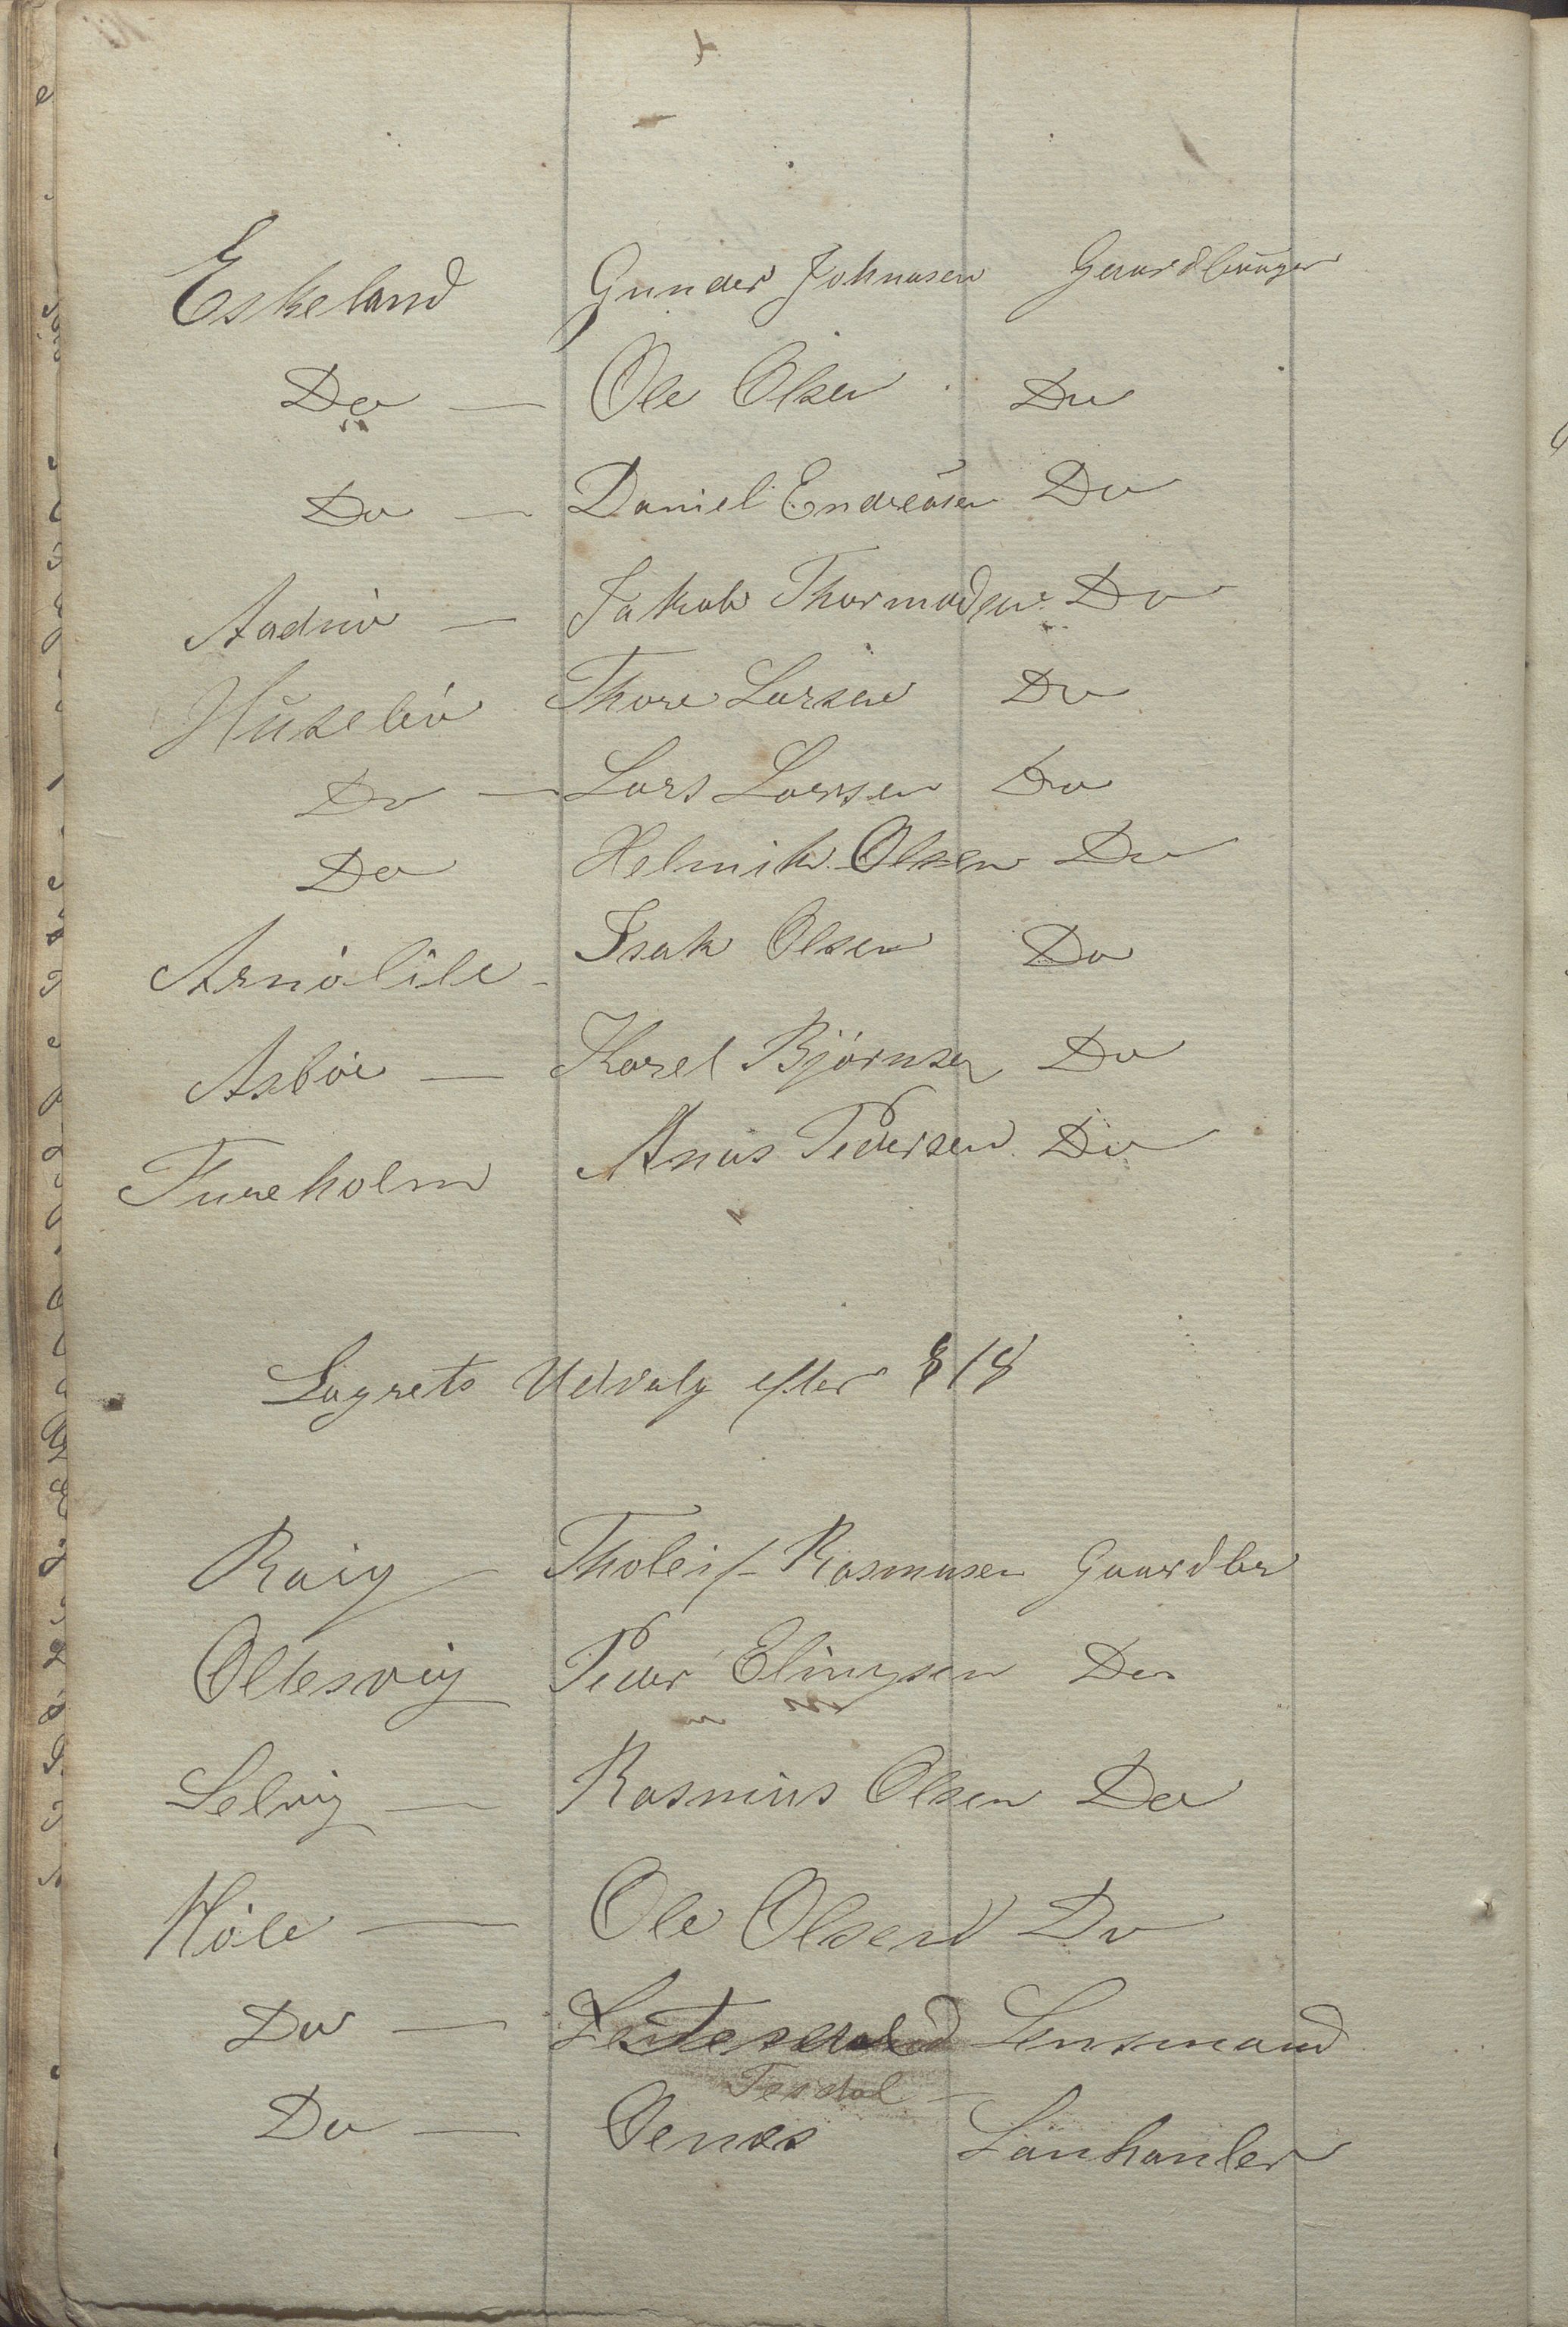 Eskeland Gunder Johnasen Gaardbruger
Do — Ole Olsen Do
Do — Daniel Endreasen Do
Aadnø — Jakob Thormodsen Do
Husebø Thore Larsen Do
Do — Lars Larsen Do
Do Helmik Olsen Do
Arnølile - Isak Olsen Do
Asbøe — Karel Bjørnsen Do
Fureholm Anas Pedersen Do
Lagrets Udvalg efter § 18
Røig Tholeif Rasmusen Gaardbr
Oltesvig Peder Elingsen Do
Selvig — Rasmus Olsen Do
Høle — Ole Olsend Do
Do — Lensmand
Tesdal
Do — Oenes Lanhanler